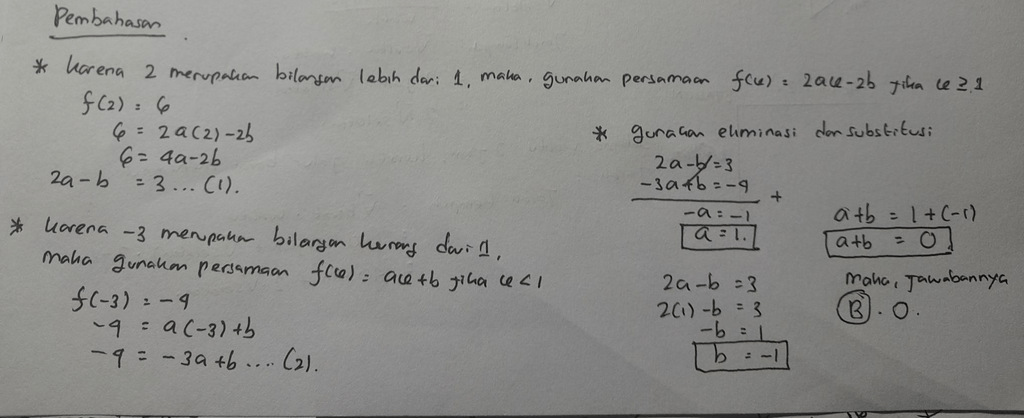 Pembahasan
* Karena 2 merupakan bilangan lebih dari 1, maka, gunakan persamaan f(x) = 2ax - 2b jika x ≥ 1
f(2) = 6
6 = 2a(2) - 2b
6 = 4a - 2b
2a - b = 3 ... (1).
* Karena -3 merupakan bilangan kurang dari 1,
maka gunakan persamaan f(x) = ax + b jika x < 1
f(-3) = -4
-4 = a(-3) + b
-4 = -3a + b .... (2).
* gunakan eliminasi dan substitusi
2a - b = 3
-3a + b = -4
+
-a = -1
a = 1.
2a - b = 3
2(1) - b = 3
-b = 1
b = -1
a + b = 1 + (-1)
a + b = 0
Maka, jawabannya
(B). 0.